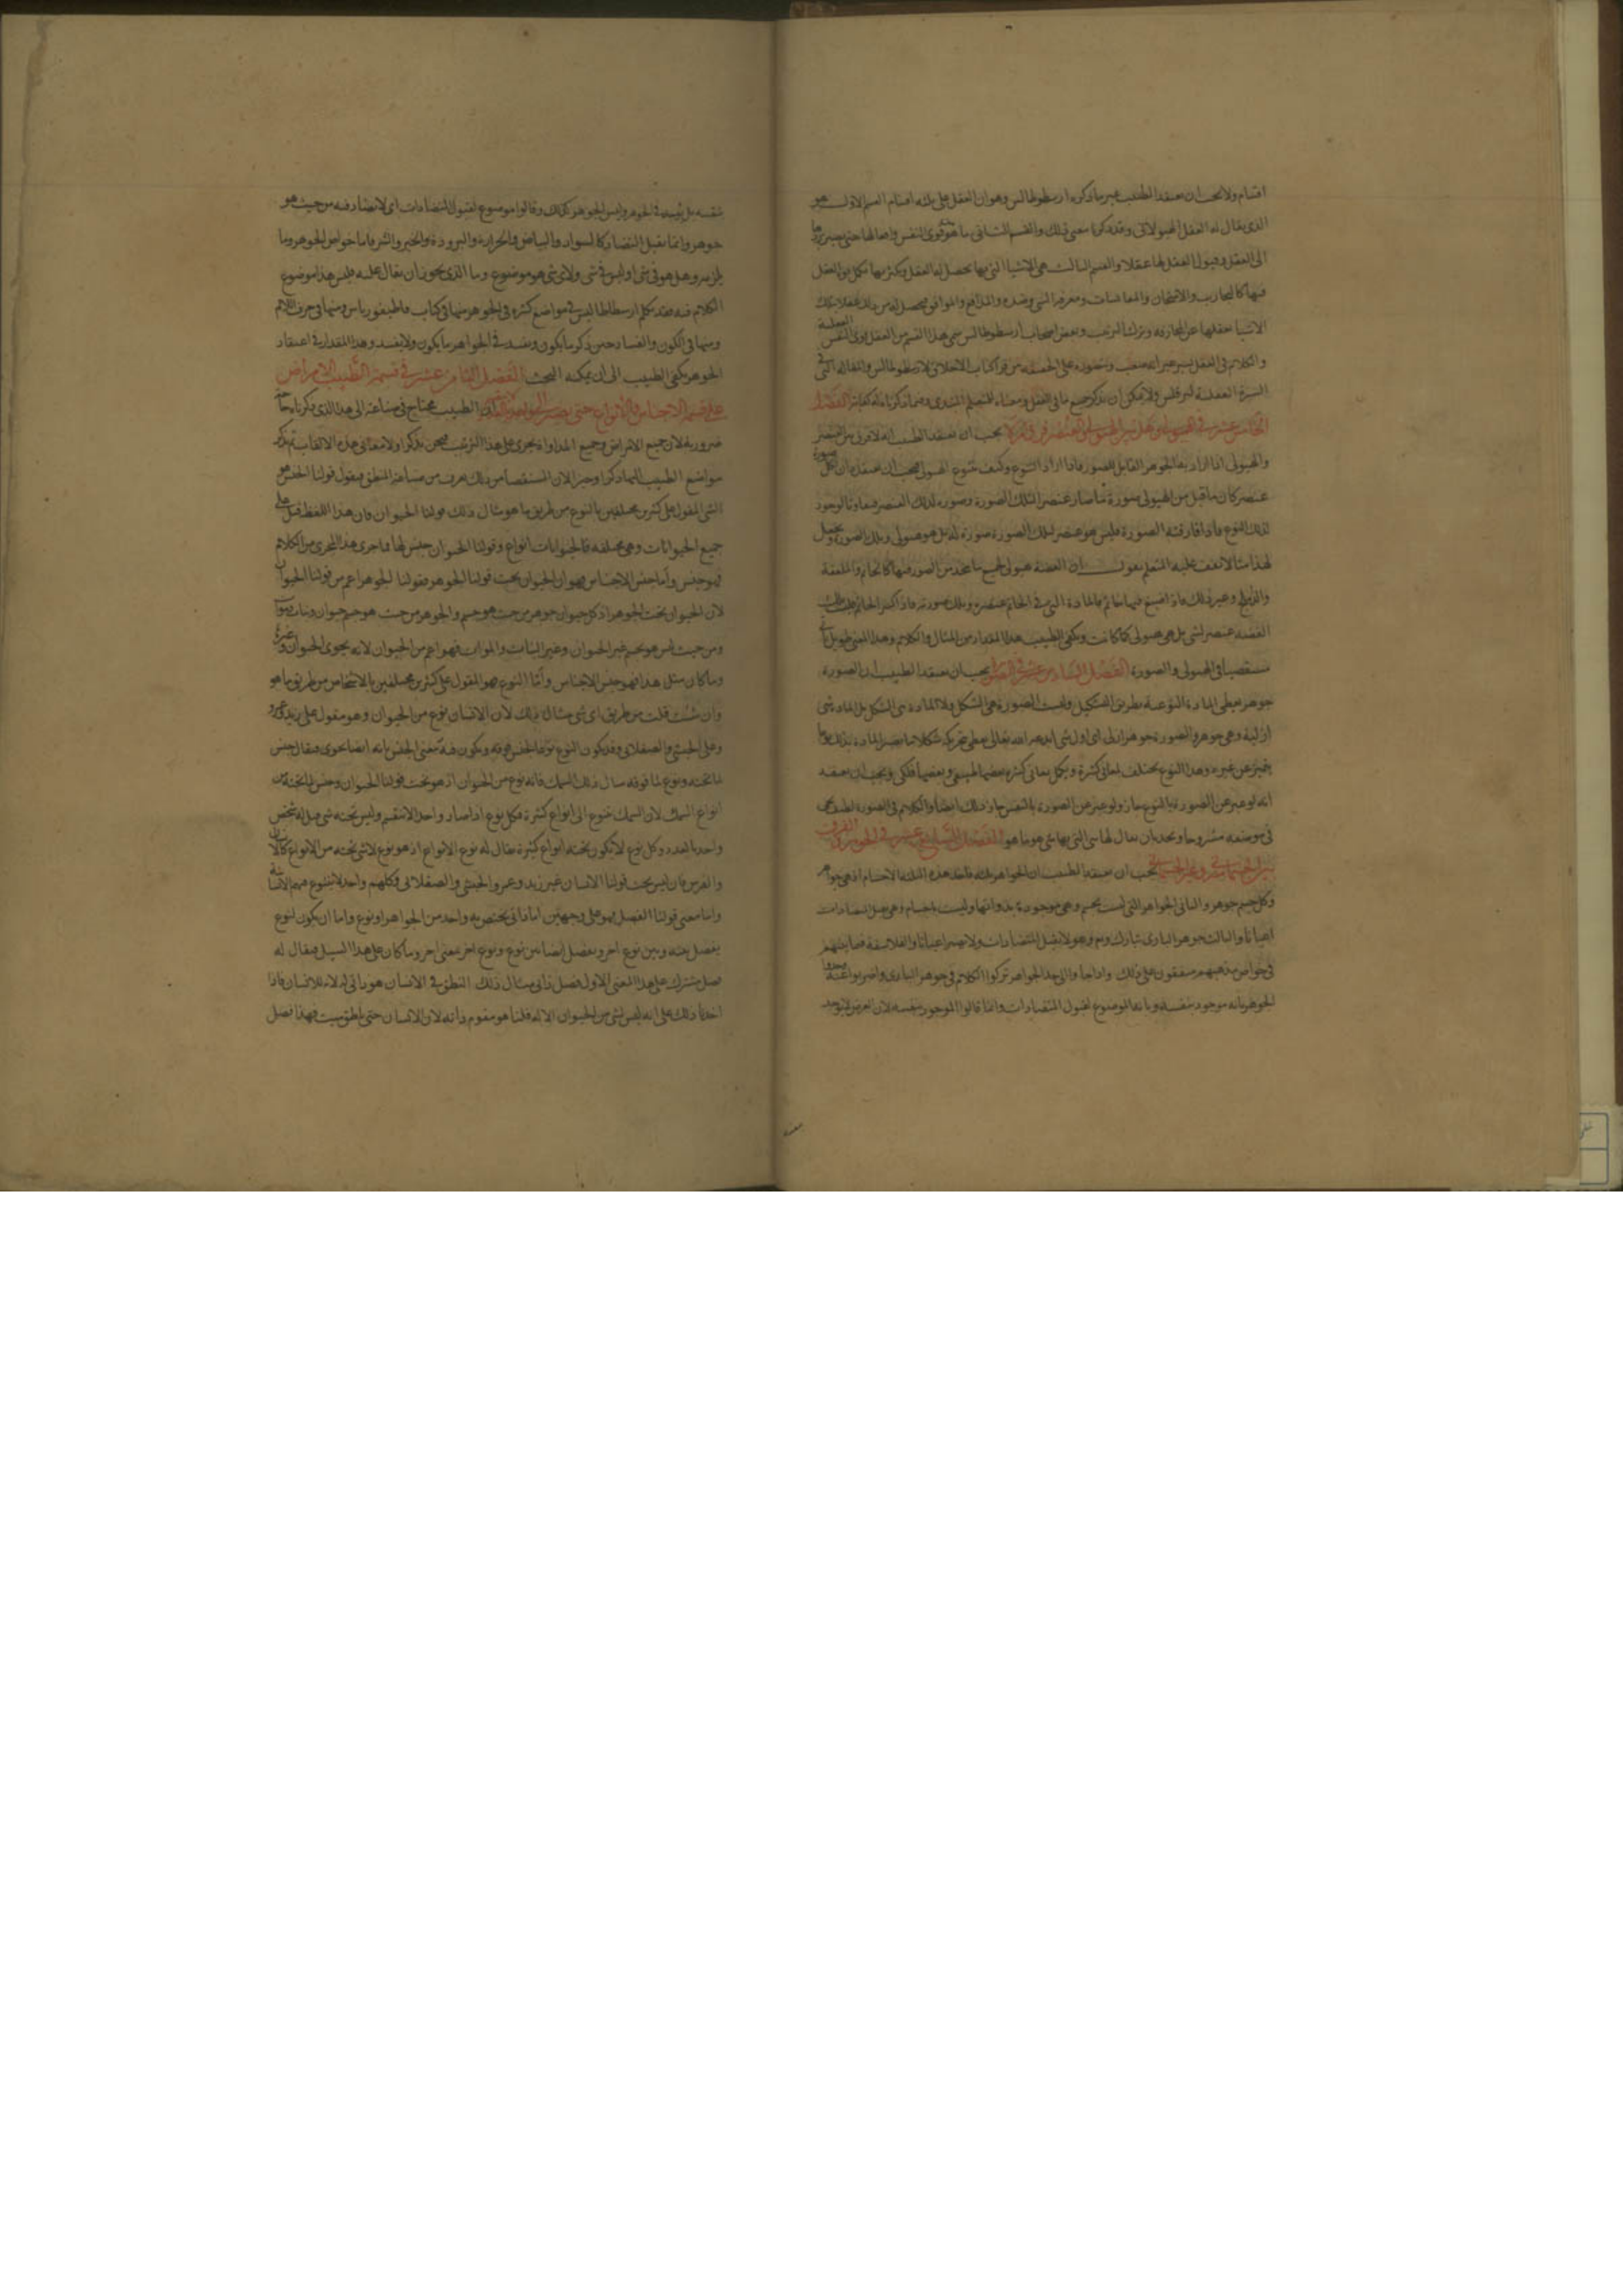 اقسام ولا يجب ان يعتقد الطبيب غير ما ذكره ارسطوطالس وهو ان العقل على ثلثه اقسام القسم الاول هو
الذى يقال له العقل الهيولانى وقد ذكرنا معنى ذلك والقسم الثانى ما هو قوى النفس وافعالها حتى يصير بها
الى العقل وقبول العقل لها عقلا والقسم الثالث هى الاشيا التى بها يحصل له العقل ويكثر بها
فيها كالتجارب والامتحان والمقايسات ومعرفة الشى وضده
الاشيا وترك الترتيب وبعض اصحاب ارسطوطالس سمى هذا القسم من العقل قوى النفس العقلية
والكلام فى العقل على الحقيقه من قرا كتاب الاخلاق لارسطوطالس والمقاله التى فى
ولا يمكن ان نذكر جميع ما فى العقل ومعناه للمتعلم المبتدى وفيما ذكرناه له كفاية الفصل
الخامس عشر فى الهيولى وهل بين الهيولى والعنصر فرق ام لا يجب ان يعتقد الطبيب انه لا فرق بين العنصر
والهيولى اذا اراد به الجوهر القابل للصور فاذا اراد التنوع وكيف تتنوع الهيولى فيجب ان يعتقد ان كل
عنصر كان ما قبل من الهيولى صورة ما صار عنصرا لتلك الصورة وصورة لذلك العنصر
لذلك النوع فاذا فارقته الصورة فليس هو عنصر لتلك الصورة صورة له بل هو هيولى وتلك الصورة ونجعل
لهذا مثالا يقف عليه المتعلم نقول ان الفضة هيولى لجميع ما يتخذ من الصور فيها كالخاتم والملعقة
وغير ذلك فاذا صيغ فيها خاتم فالمادة التى فى الخاتم عنصره وتلك صورته فاذا كسر الخاتم
الفضه عنصر لشى بل هى هيولى كما كانت ويكفى الطبيب هذا المقدار من المثال والكلام وهذا المعنى طويل
فى الهيولى والصورة الفصل السادس عشر فى الصورة يجب ان يعتقد الطبيب ان الصورة
جوهر يعطى المادة النوعية بطريق التشكيل وليست الصورة هى الشكل ولا المادة هى الشكل بل المادة شى
ازلية وهى جوهر والصورة جوهر ازلى اى اول شى ابدعه الله تعالى
يتميز عن غيره وهذا النوع يختلف لمعانى كثيرة
انه لو عبر عن الصورة بالنوع جاز ولو عبر عن الصورة بالنفس جاز ذلك ايضا والكلام فى الصورة
فى موضعه مشروحا الفصل السابع عشر فى الجوهر والفرق
بين الجسمانى وغير الجسمانى يجب ان يعتقد الطبيب ان الجواهر ثلثه فاحد هذه الثلثه الاجسام اذ هى جواهر
وكل جسم جوهر والثانى الجواهر التى ليست بجسم وهى موجودة بذواتها وليست باجسام وهى تقبل المتضادات
احيانا والثالث جوهر البارى تبارك وتعالى وهو لا يقبل المتضادات ولا يصير اعيانا والفلاسفة فيما بينهم
فى خواص مذهبهم متفقون على ذلك واذا جاوا الى حد الجواهر تركوا الكلام فى جوهر البارى واضربوا عنه
الجوهر بانه موجود بنفسه وبانه الموضوع لقبول المتضادات وانما قالوا الموجود بنفسه لان العرض لا يوجد
بنفسه بل يوجد فى الجوهر وليس الجوهر كذلك وقالوا موضوع لقبول المتضادات اى لا تضاد فيه من حيث هو
جوهر وانما يقبل التضاد كالسواد والبياض والحرارة والبرودة والخير والشر فاما خواص الجوهر وما
يلزمه وهل هو فى شى او ليس فى شى ولاى شى هو موضوع وما الذى يجوز ان يقال عليه فليس هذا موضوع
الكلام فيه فقد تكلم ارسطاطاليس فى مواضع كثيرة فى الجوهر منها فى كتاب قاطيغورياس ومنها فى حرف اللام
ومنها فى الكون والفساد حين ذكر ما يكون ويفسد فى الجواهر ما يكون ولا يفسد وهذا المقدار فى اعتقاد
الجوهر يكفى الطبيب الى ان يمكنه البحث الفصل الثامن عشر فى قسمة الطبيب الامراض
على قسمة الاجناس والانواع حتى يصير الى الطبيب يحتاج فى صناعته الى هذا الذى ذكرناه حاجة
ضرورية لان جميع الامراض وجميع المداواة يجرى على هذا الترتيب فنحن نذكر اولا معانى هذه الالقاب ثم نذكر
مواضع الطبيب من صناعة المنطق فنقول قولنا الجنس هو
الشى المقول على كثيرين مختلفين بالنوع من طريق ما هو مثال ذلك قولنا الحيوان فان هذا اللفظ قيل على
جميع الحيوانات وهى مختلفه فالحيوانات انواع وقولنا الحيوان جنس لها فما جرى هذا المجرى من الكلام
فهو جنس واما جنس الاجناس فهو ان الحيوان تحت قولنا الجوهر فقولنا الجوهر اعم من قولنا الحيوان
لان الحيوان تحت الجوهر اذ كل حيوان جوهر من حيث هو جسم والجوهر من حيث هو جسم حيوان ونبات وموات
ومن حيث ليس هو بجسم غير الحيوان وغير النبات والموات فهو اعم من الحيوان لانه يحوى الحيوان وغيره
وما كان مثل هذا فهو جنس الاجناس واما النوع فهو المقول على كثيرين مختلفين بالاشخاص من طريق ما هو
وان شئت قلت من طريق اى شى مثال ذلك لان الانسان نوع من الحيوان وهو مقول على زيد وعمرو
وعلى الحبشى والصقلابى وقد يكون النوع نوعا لجنس فوقه ويكون فيه معنى الجنس بانه ايضا يحوى فيقال جنس
لما تحته ونوع لما فوقه مثال ذلك السمك فانه نوع من الحيوان اذ هو تحت قولنا الحيوان وجنس لما تحته من
انواع السمك لان السمك يتنوع الى انواع كثيرة فكل نوع اذا صار واحدا لا ينقسم وليس تحته شى قيل له شخص
واحد بالعدد وكل نوع لا يكون تحته انواع كثيرة يقال له نوع الانواع اذ هو نوع لا شى تحته من الانواع كالانسان
والفرس فان ليس تحت قولنا الانسان غير زيد وعمرو والحبشى والصقلابى وكلهم واحد لا يتنوع منهم الانسان
واما معنى قولنا الفصل فهو على وجهين اما ذاتى يختص به واحد من الجواهر او نوع واما ان يكون لنوع
يفصل بينه وبين نوع اخر وبفصل ايضا بين نوع ونوع اخر بمعنى اخر وما كان على هذا السبيل فيقال له
فصل مشترك على هذا المعنى الاول فصل ذاتى مثال ذلك النطق فى الانسان هو ذاتى له لانه للانسان فاذا
اخذنا ذلك على انه ليس لشى من الحيوان الا له قلنا هو مقوم ذاته لان الانسان حى ناطق ميت فهذا فصل